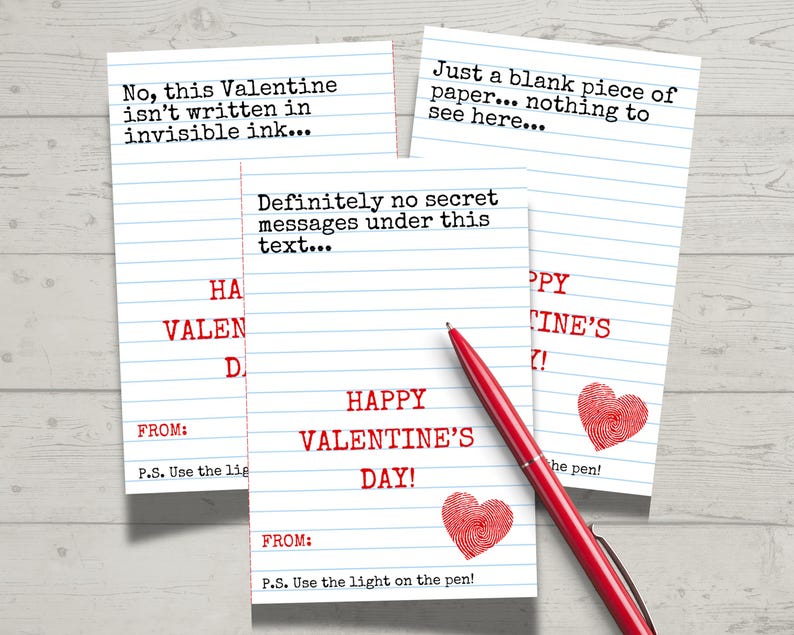 No, this Valentine
isn't written in
invisible ink...
HA
VALEN
D
FROM:
P.S. Use the lig
Just a blank piece of
paper... nothing to
see here...
PPY
TINE'S
Y!
the pen!
Definitely no secret
messages under this
text...
HAPPY
VALENTINE'S
DAY!
FROM:
P.S. Use the light on the pen!